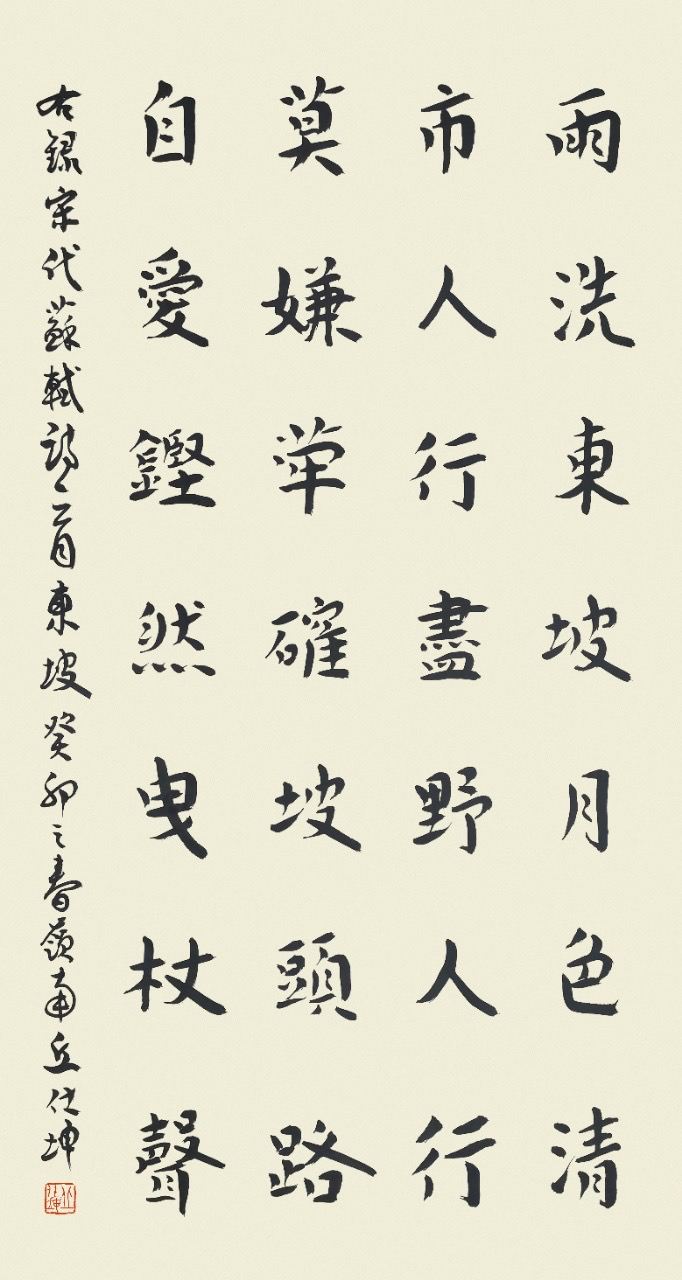 雨洗東坡月色清
市人行盡野人行
莫嫌犖確坡頭路
自愛鏗然曳杖聲
右録宋代蘇軾詩一首東坡癸卯之春嶺南丘仕坤